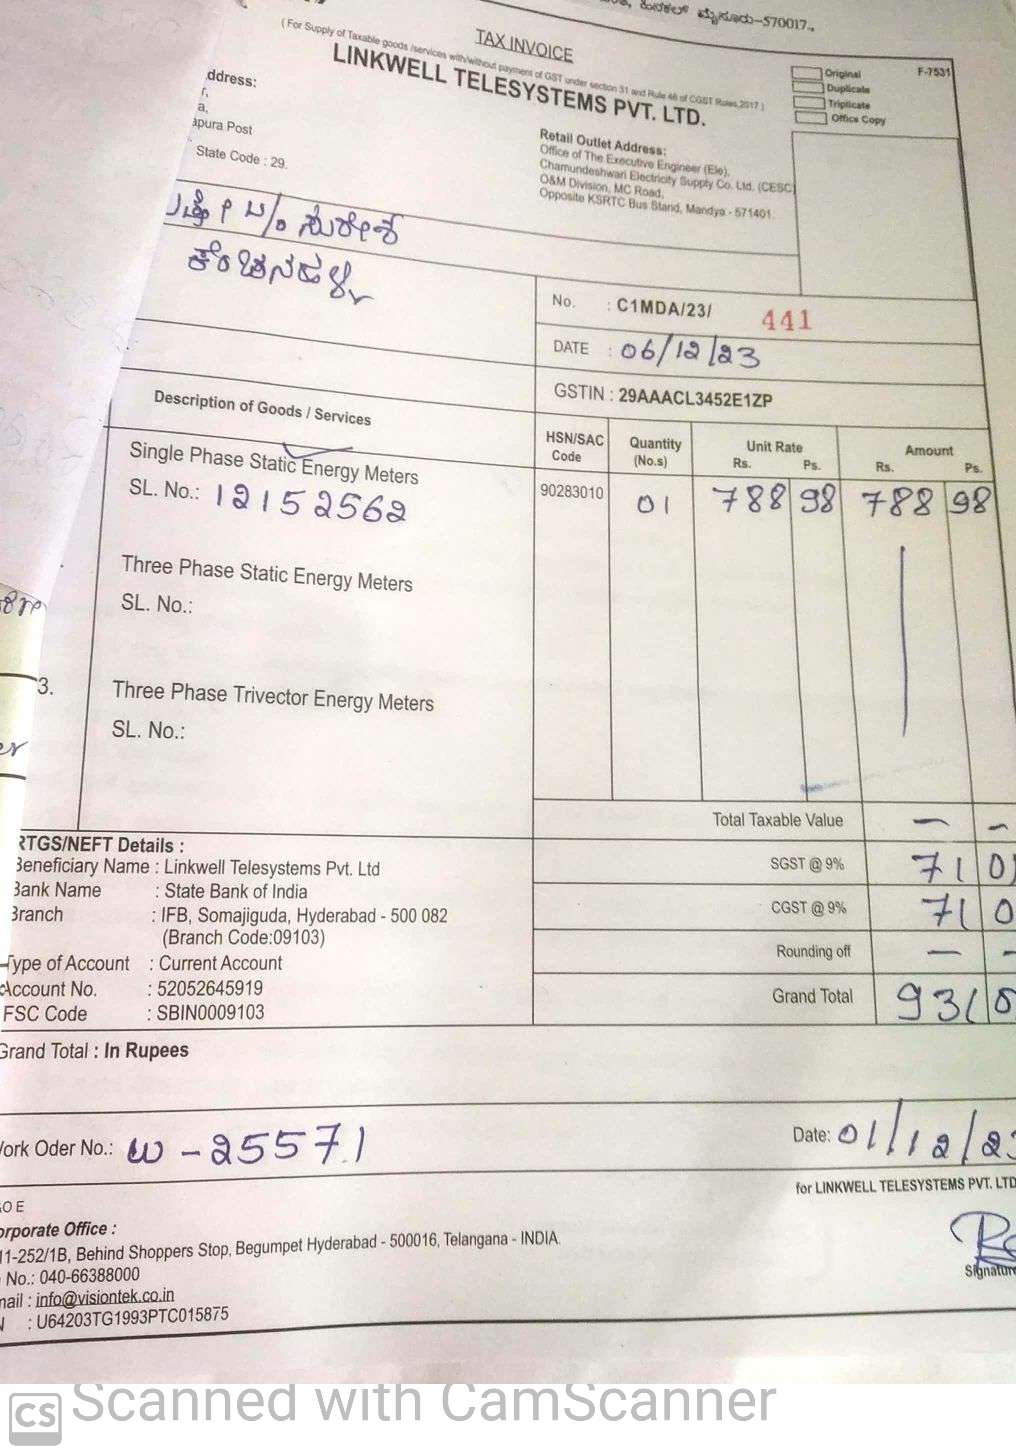 ಮೈಸೂರು-570017.,
TAX INVOICE
(For Supply of Taxable goods /services with/without payment of GST under section 31 and Rule 46 of CGST Rules,2017)
LINKWELL TELESYSTEMS PVT. LTD.
Original
F-7531
Duplicate
Triplicate
Office Copy
ddress:
r,
a,
apura Post
State Code : 29.
Retail Outlet Address:
Office of The Executive Engineer (Ele),
Chamundeshwari Electricity Supply Co. Ltd. (CESC)
O&M Division, MC Road,
Opposite KSRTC Bus Stand, Mandya - 571401.
ಸುರೇಶ
ಕೆಂಚನಹಳ್ಳಿ
No. : C1MDA/23/ 441
DATE : 06/12/23
GSTIN : 29AAACL3452E1ZP
Description of Goods / Services
HSN/SAC Code
Quantity (No.s)
Unit Rate Rs. Ps.
Amount Rs. Ps.
Single Phase Static Energy Meters
SL. No.: 12152562
90283010 01 788 98 788 98
Three Phase Static Energy Meters
SL. No.:
3. Three Phase Trivector Energy Meters
SL. No.:
Total Taxable Value — —
SGST @ 9% 71 01
CGST @ 9% 71 0
Rounding off — -
Grand Total 931
RTGS/NEFT Details :
Beneficiary Name : Linkwell Telesystems Pvt. Ltd
Bank Name : State Bank of India
Branch : IFB, Somajiguda, Hyderabad - 500 082
(Branch Code:09103)
Type of Account : Current Account
Account No. : 52052645919
FSC Code : SBIN0009103
Grand Total : In Rupees
ork Oder No.: W-25571
Date: 01/12/23
for LINKWELL TELESYSTEMS PVT. LTD
Signature
O E
orporate Office :
11-252/1B, Behind Shoppers Stop, Begumpet Hyderabad - 500016, Telangana - INDIA.
No.: 040-66388000
mail : info@visiontek.co.in
: U64203TG1993PTC015875
CS Scanned with CamScanner